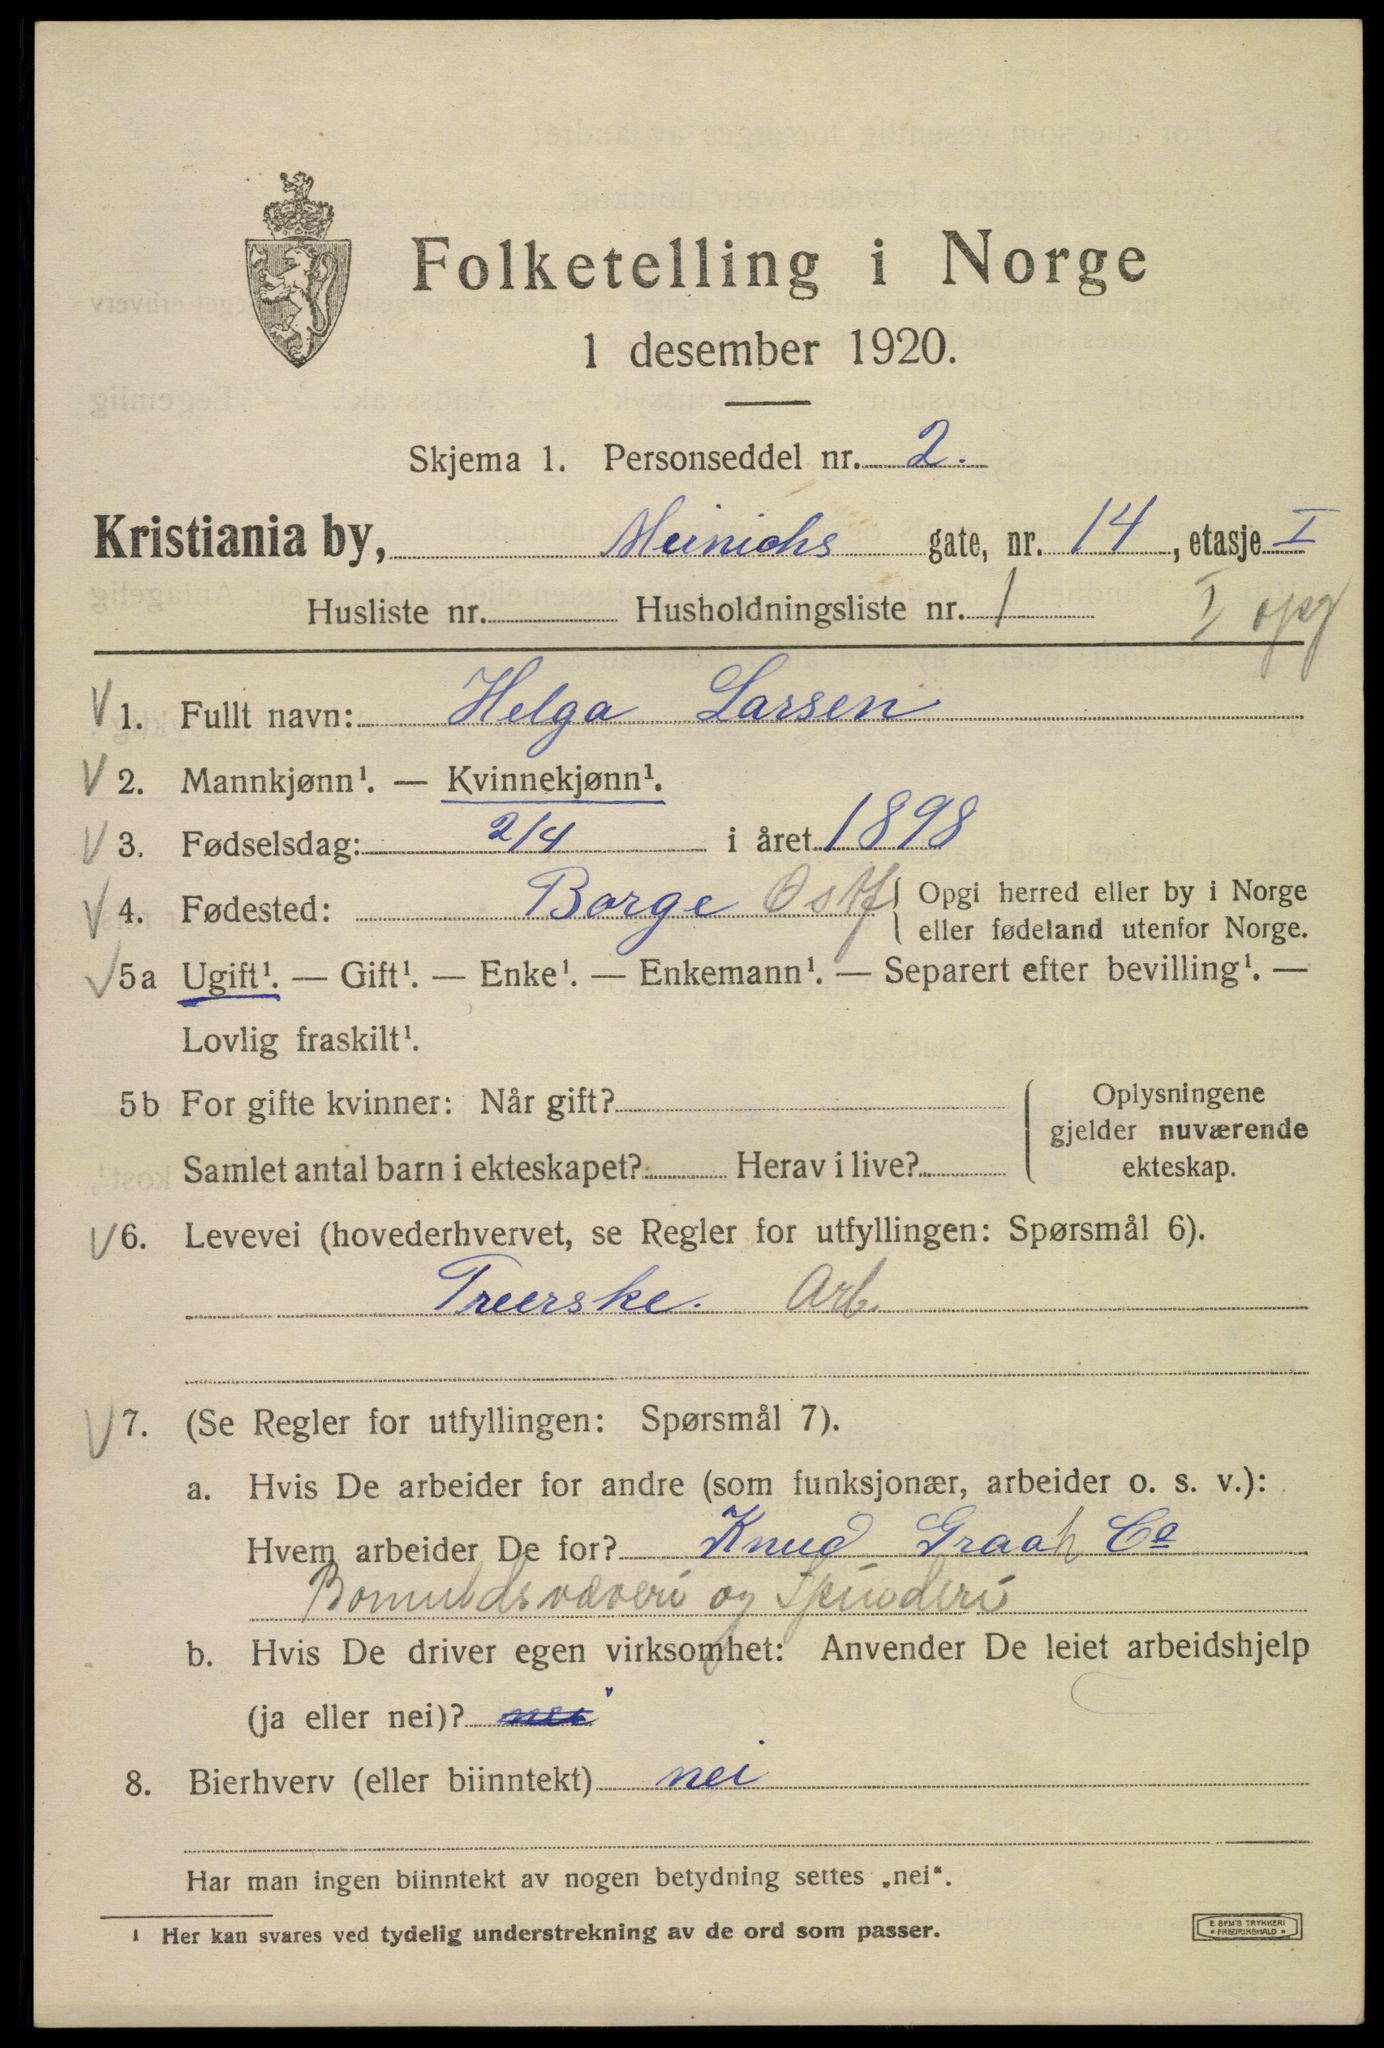 Folketelling i Norge
1 desember 1920.
Skjema 1. Personseddel nr. 2.
Kristiania by, Meinichs gate, nr. 14, etasje I
Husliste nr. Husholdningsliste nr. 1 I opg
V 1. Fullt navn: Helga Larsen
V 2. Mannkjønn¹. — Kvinnekjønn¹.
V 3. Fødselsdag: 2/4 i året 1898
V 4. Fødested: Borge Østf { Opgi herred eller by i Norge
eller fødeland utenfor Norge.
V 5a Ugift¹. — Gift¹. — Enke¹. — Enkemann¹. — Separert efter bevilling¹. —
Lovlig fraskilt¹.
5b For gifte kvinner: Når gift? Oplysningene
gjelder nuværende
Samlet antal barn i ekteskapet? Herav i live? ekteskap.
V 6. Levevei (hovederhvervet, se Regler for utfyllingen: Spørsmål 6).
Treerske. Arb.
V 7. (Se Regler for utfyllingen: Spørsmål 7).
a. Hvis De arbeider for andre (som funksjonær, arbeider o. s. v.):
Hvem arbeider De for? Knud Graah Co
Bomuldsvæveri og Spinderi
b. Hvis De driver egen virksomhet: Anvender De leiet arbeidshjelp
(ja eller nei)? nei
8. Bierhverv (eller biinntekt) nei
Har man ingen biinntekt av nogen betydning settes „nei".
¹ Her kan svares ved tydelig understrekning av de ord som passer.
E. SEM'S TRYKKERI
* FREDRIKSHALD *